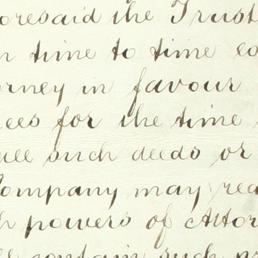 oresaid the Trust
time to time
orney in favour
ees for the time
such deeds or
ompany may rea
h powers of Attor
contain such